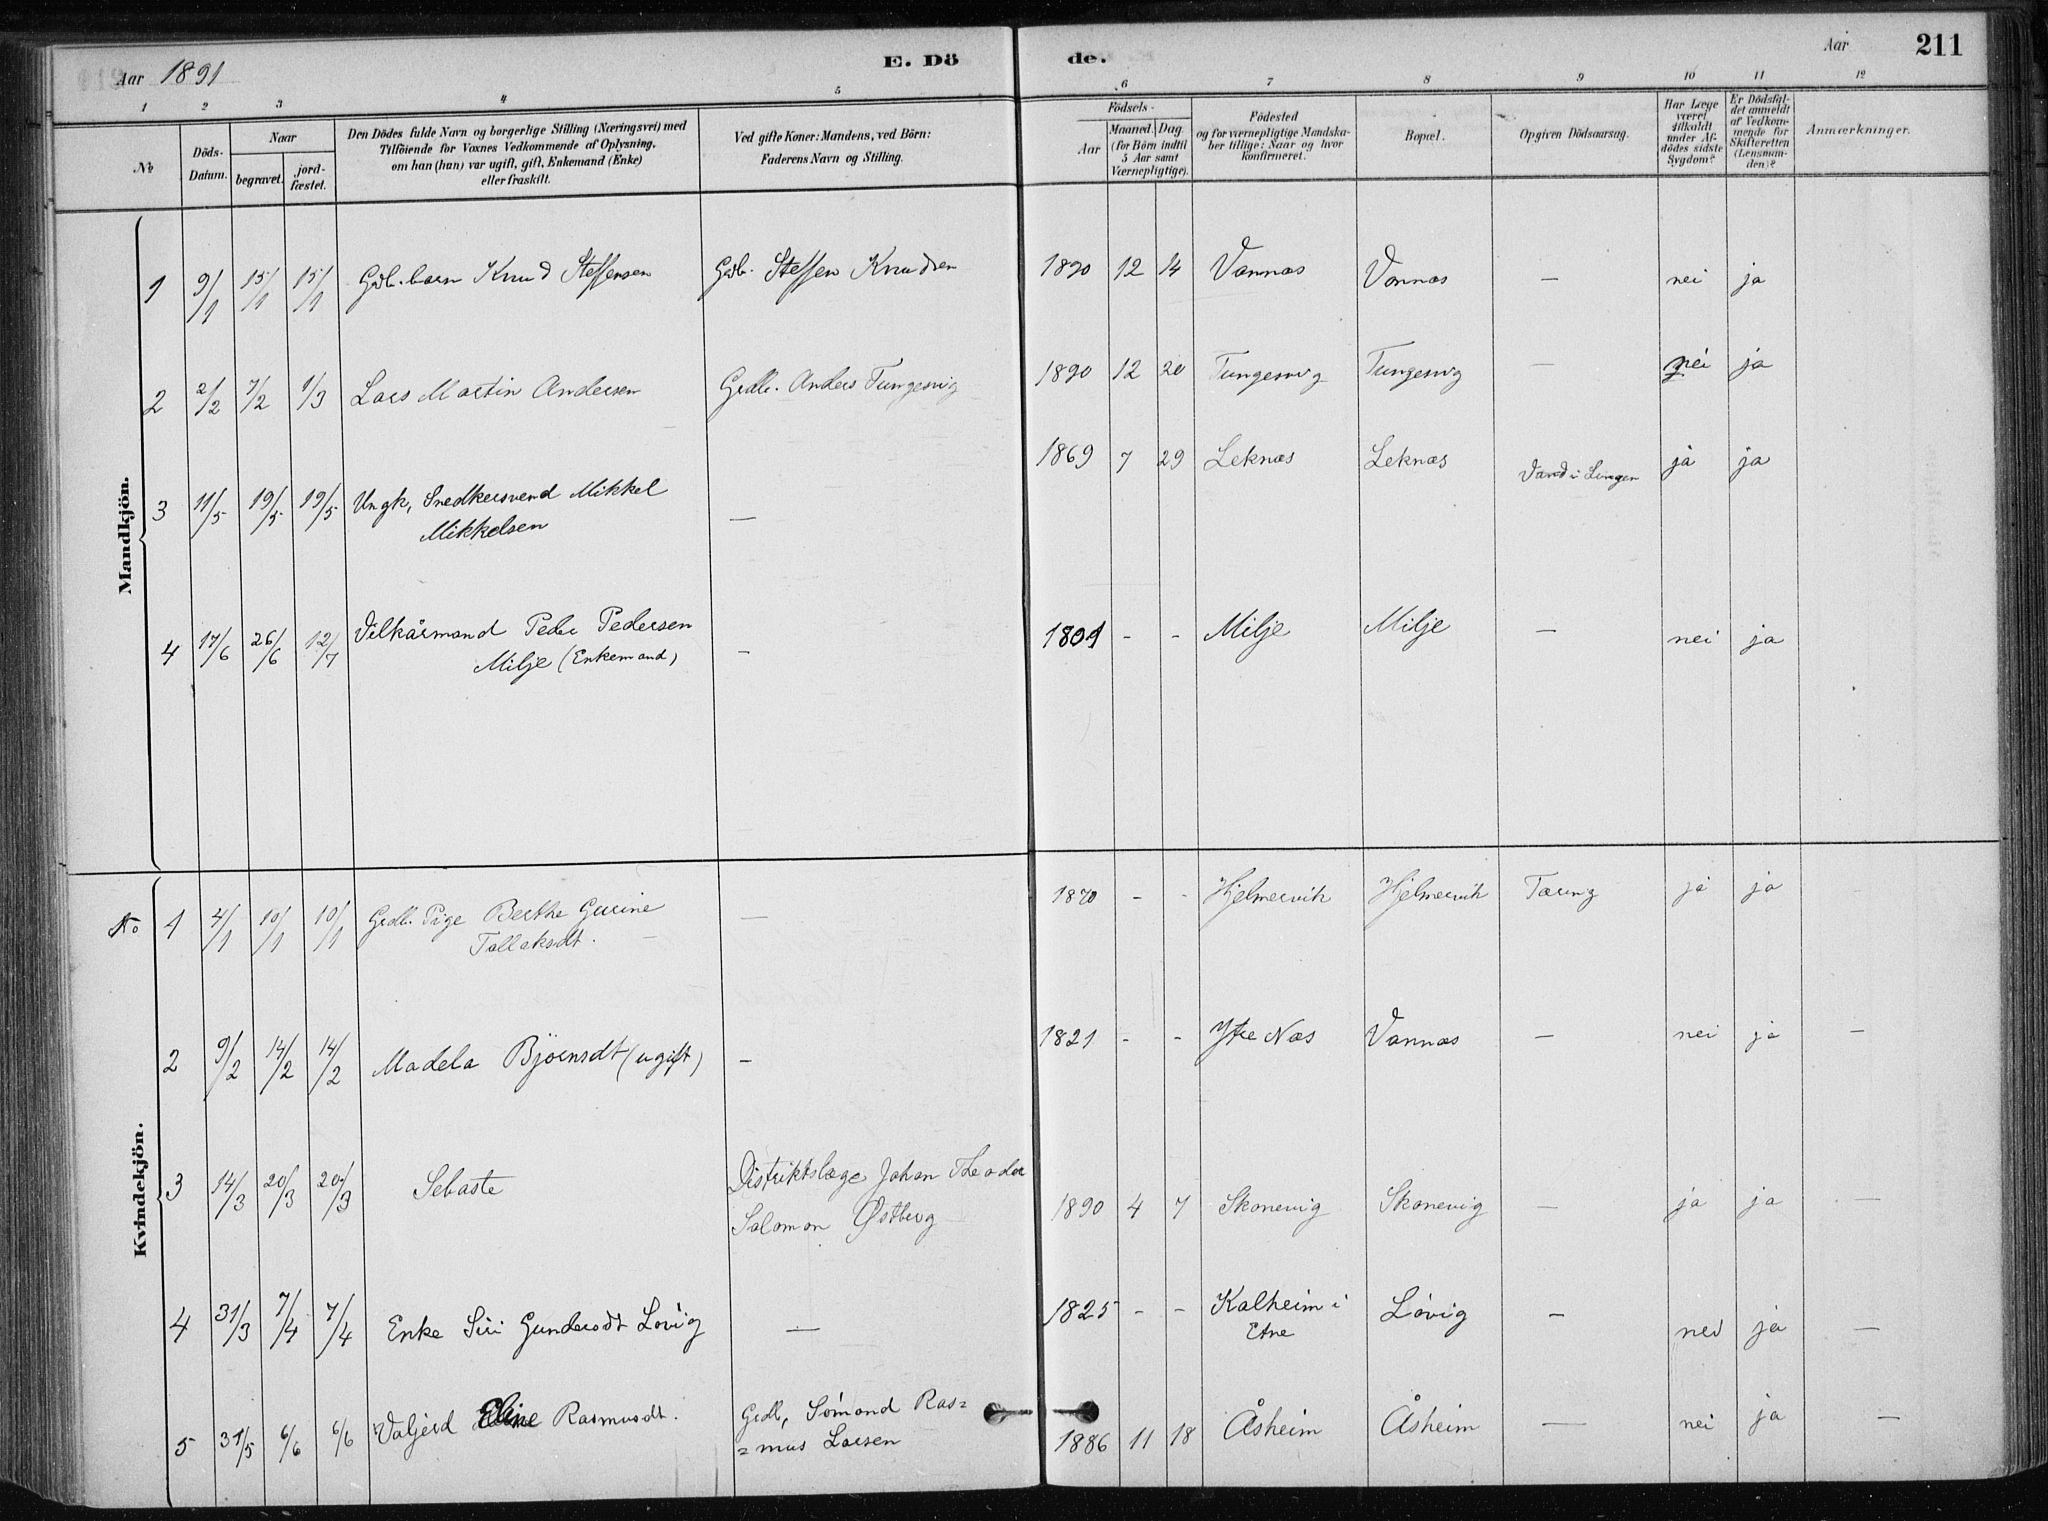 Aar 1891
E. Dö
de.
Aar
211
1 2 3 4 5 6 7 8 9 10 11 12
No
Döds-Datum.
Naar
begravet.
jord-fæstet.
Den Dödes fulde Navn og borgerlige Stilling (Næringsvei) med
Tilföiende for Voxnes Vedkommende af Oplysning,
om han (hun) var ugift, gift, Enkemand (Enke)
eller fraskilt.
Ved gifte Koner: Mandens, ved Börn:
Faderens Navn og Stilling.
Födsels-
Aar
Maaned. Dag.
(for Börn indtil
5 Aar samt
Værnepligtige).
Födested
og for værnepligtige Mandska-
ber tillige: Naar og hvor
konfirmeret.
Bopæl.
Opgiven Dödsaarsag.
Har Læge
været
tilkaldt
under Af-
dödes sidste
Sygdom?
Er Dödsfal-
det anmeldt
af Vedkom-
mende for
Skifteretten
(Lensman-
den)?
Anmærkninger.
Mandkjön.
1 9/1 15/1 15/1 Gdb. barn Knud Steffensen Gdb. Steffen Knudsen 1890 12 14 Vannæs Vannæs — nei ja
2 2/2 7/2 1/3 Lars Martin Andersen Grdb. Anders Tungesvig 1890 12 20 Tungesvig Tungesvig — nei ja
3 11/5 19/5 19/5 Ungk, Snedkersvend Mikkel
Mikkelsen — 1869 7 29 Leknæs Leknæs Vand i Lungen ja ja
4 17/6 26/6 12/7 Vilkårmand Peder Pedersen
Milje (Enkemand) — 1801 - - Milje Milje — nei ja
No
Kvindekjön.
1 4/1 10/1 10/1 Grdb. Pige Berthe Gurine
Tollaksdt. — 1870 - - Hjelmervik Hjelmervik Tæring ja ja
2 9/2 14/2 14/2 Madela Bjørnsdt (ugift) — 1821 - - Ytre Næs Vannæs — nei ja —
3 14/3 20/3 20/3 Sebaste Distriktslæge Johan Theodor
Salomon Østberg 1890 4 7 Skonevig Skonevig — ja ja —
4 31/3 7/4 7/4 Enke Siri Gundersdt Løvig — 1825 - - Kalheim i
Etne Løvig — nei ja —
5 31/5 6/6 6/6 Valjerd Eline Rasmusdt. Grdb, Sømand Ras=
=mus Larsen 1886 11 18 Åsheim Åsheim — nei ja —